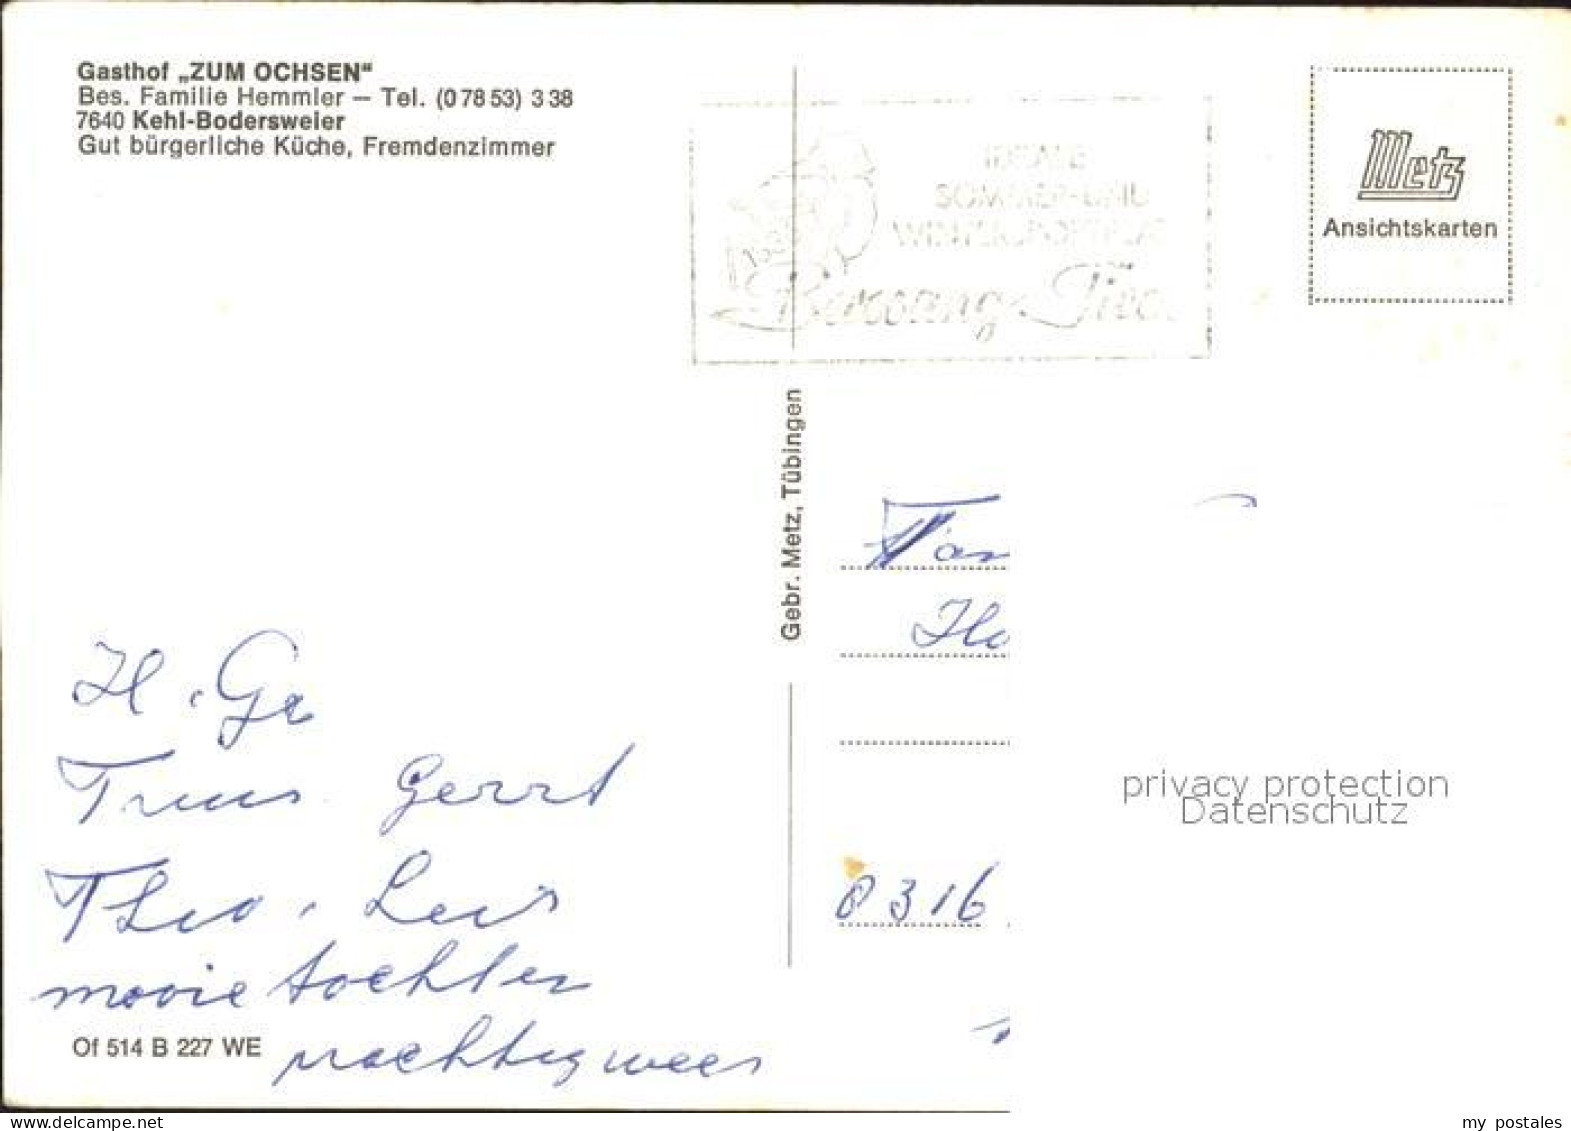 Gasthof „ZUM OCHSEN"
Bes. Familie Hemmler — Tel. (0 78 53) 3 38
7640 Kehl-Bodersweier
Gut bürgerliche Küche, Fremdenzimmer
IDEALE
SOMMER-UND
Berwang-Tirol
Metz
Ansichtskarten
Gebr. Metz, Tübingen
Fam
Ho
H. Gr
Truus Gerrt
Theo. Leus
movie tochten
prachtig weer
8316
Of 514 B 227 WE
privacy protection
Datenschutz
www.delcampe.net
my_postales